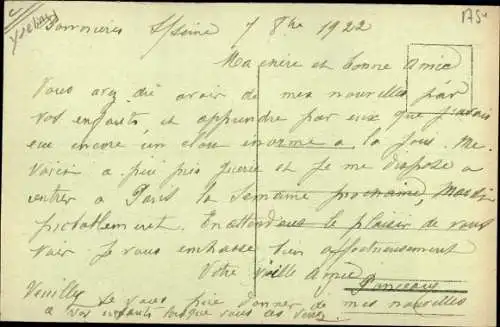 Bonnières s/Seine 7 8bre 1922
Yvelines
1751
Ma chère et bonne Amie
Vous avez dû avoir de mes nouvelles par
vos enfants, et apprendre par eux que j'avais
eu encore un clou énorme a la joue. Me
voici a peu près guérie et je me dispose a
rentrer a Paris la Semaine prochaine, Mardi
probablement. En attendant le plaisir de vous
voir je vous embrasse bien affectueusement
Votre vieille Amie
Veuillez je vous prie donner de mes nouvelles
a vos enfants lorsque vous les verrez